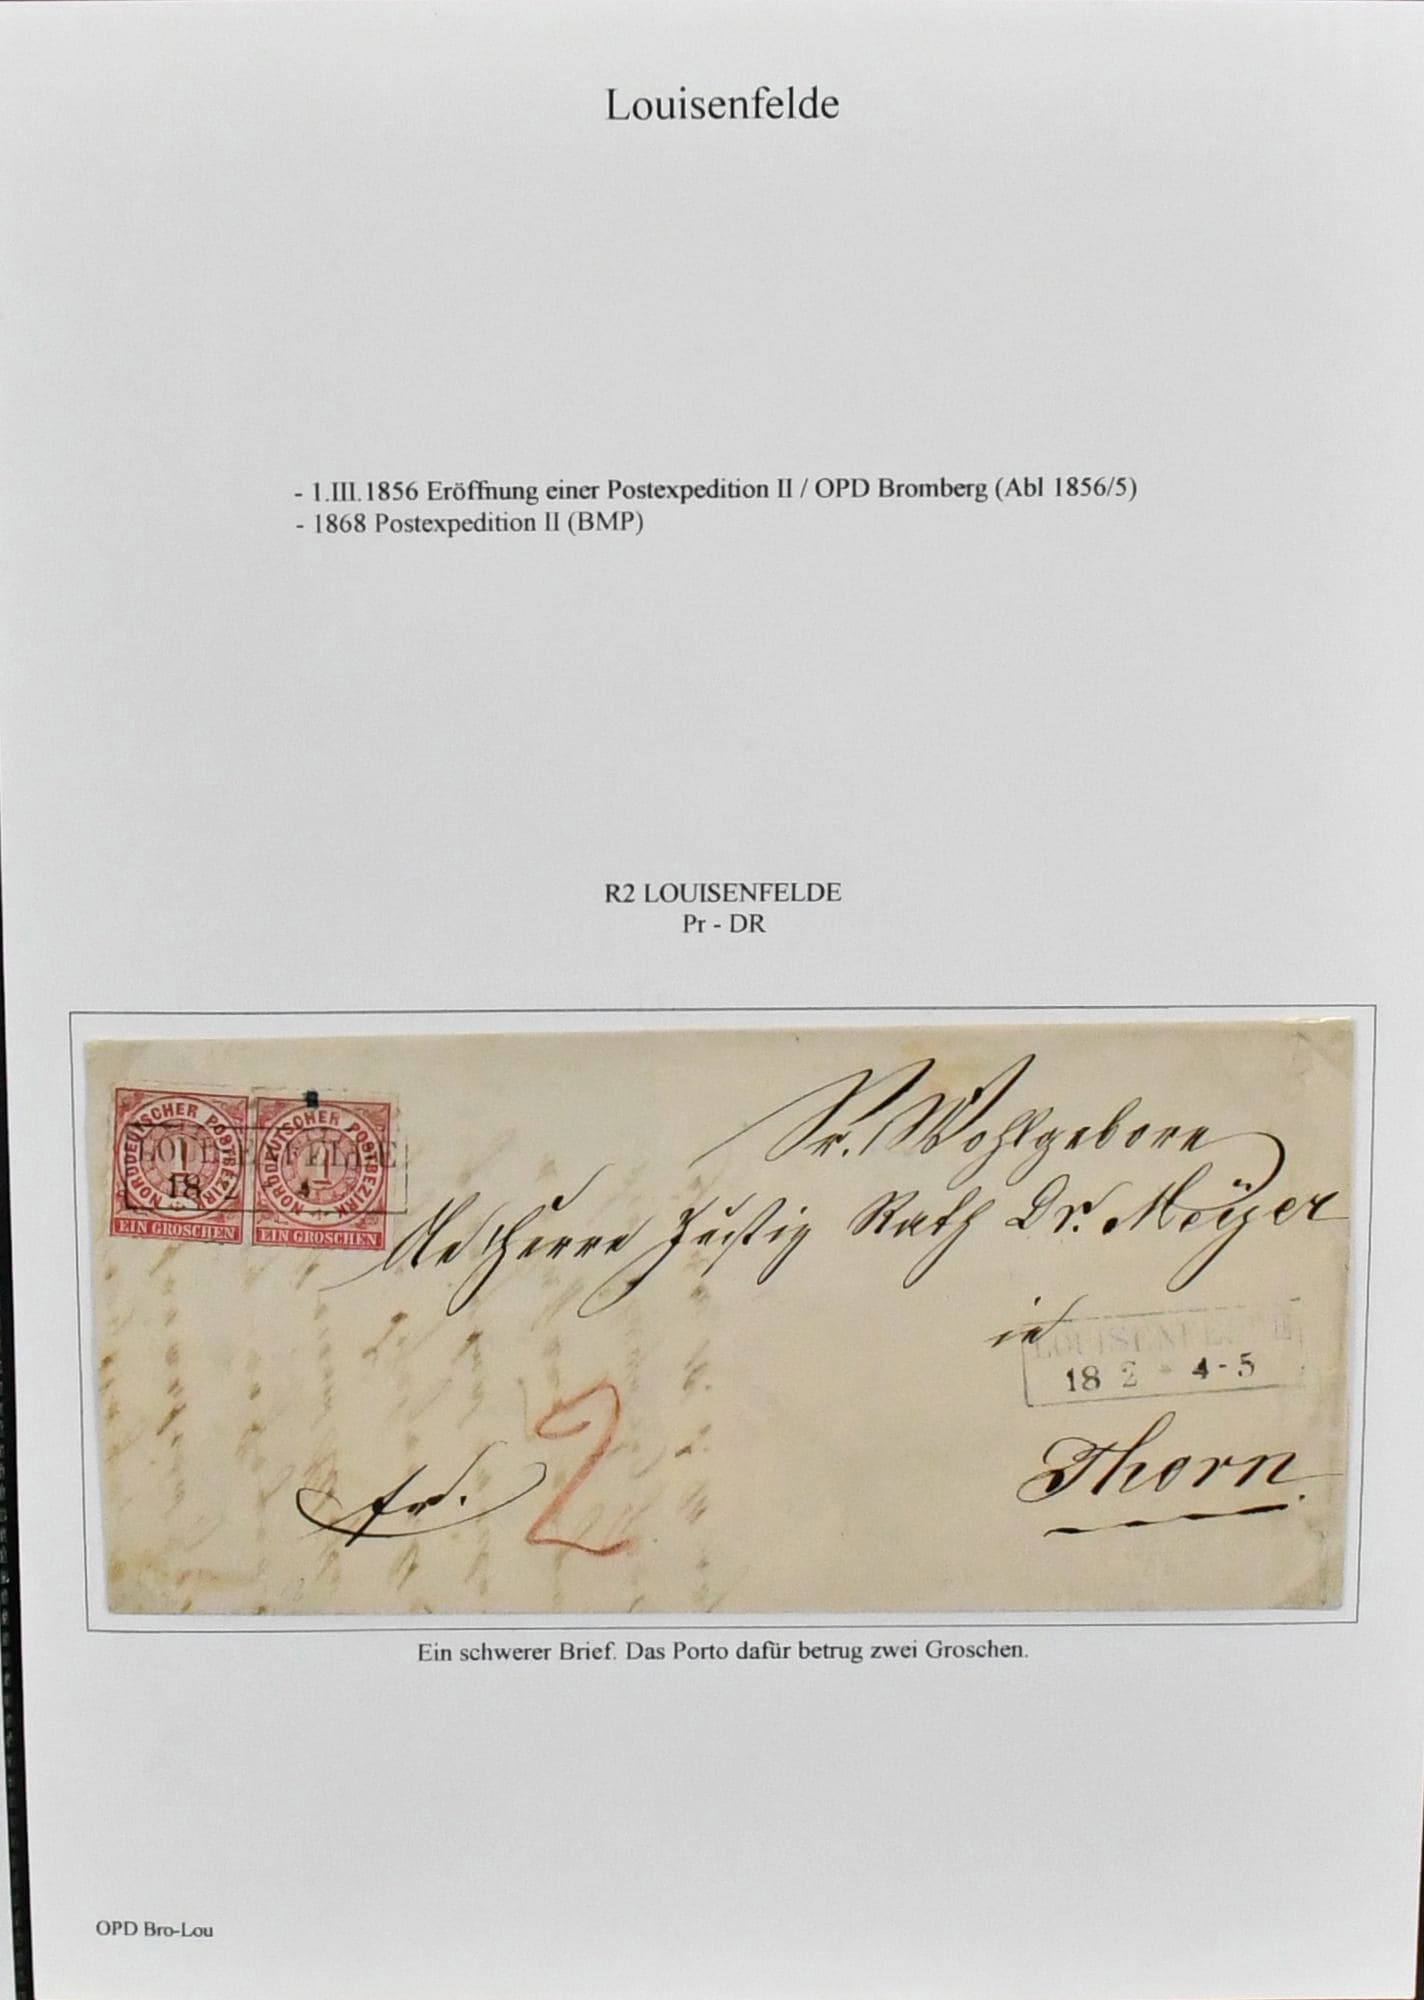 Louisenfelde
- 1.III.1856 Eröffnung einer Postexpedition II / OPD Bromberg (Abl 1856/5)
- 1868 Postexpedition II (BMP)
R2 LOUISENFELDE
Pr - DR
NORDDEUTSCHER POSTBEZIRK
1
EIN GROSCHEN
NORDDEUTSCHER POSTBEZIRK
1
EIN GROSCHEN
LOUISENFELDE
18
Sr. Wohlgeboren
Herrn Justiz Rath Dr. Meyer
in
LOUISENFELDE
18 2 * 4-5
Thorn.
fr.
2
Ein schwerer Brief. Das Porto dafür betrug zwei Groschen.
OPD Bro-Lou